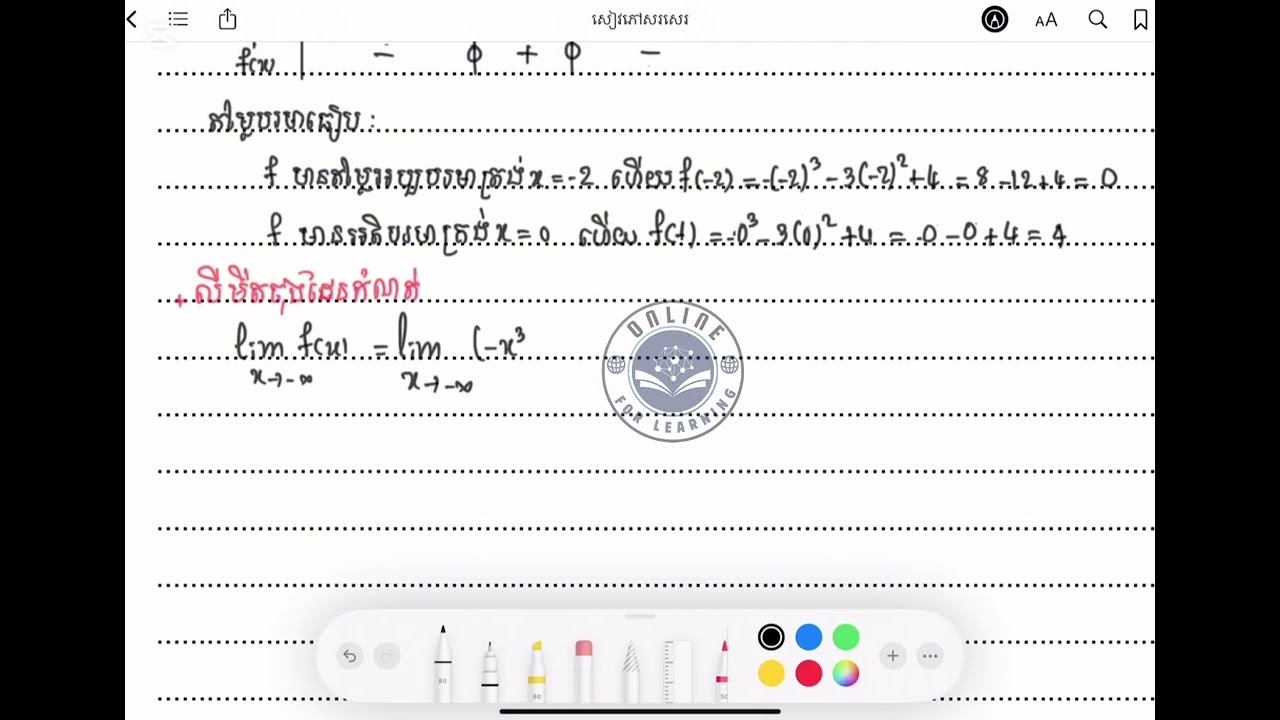 សៀវភៅសរសេរ
AA
f'(x) | − 0 + 0 −
តម្លៃបរមាធៀប :
f មានតម្លៃអប្បបរមាត្រង់ x = -2 ហើយ f(-2) = -(-2)³ - 3(-2)² + 4 = 8 - 12 + 4 = 0
f មានអតិបរមាត្រង់ x = 0 ហើយ f(1) = -0³ - 3(0)² + 4 = -0 - 0 + 4 = 4
+ លីមីតចុងដែនកំណត់
lim f(x) = lim (-x³
x→-∞ x→-∞
ONLINE
FOR LEARNING
80 80 50